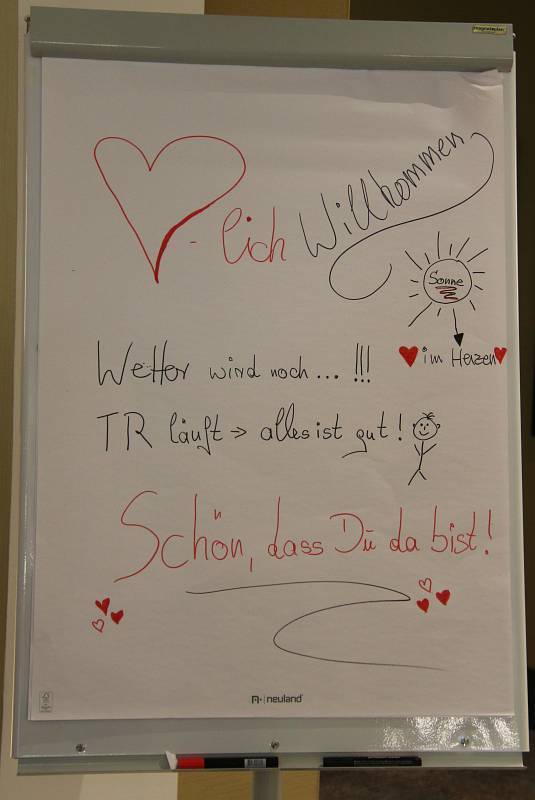 magnetoplan
-lich Willkommen
Sonne
im Herzen
Wetter wird noch... !!!
TR läuft → alles ist gut!
Schön, dass Du da bist!
neuland